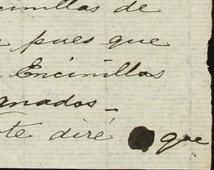 cinillas de
pues que
Encinillas
anados_
te diré que